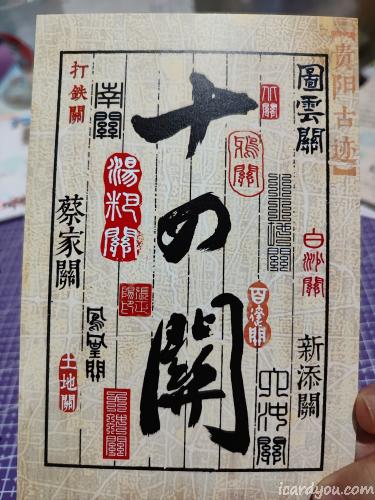 【贵阳古迹】
圖雲關
白沙關
新添關
鴉關
六冲關
十四關
南關
湯粑關
鳳皇關
打鉄關
蔡家關
土地關
icardyou.com